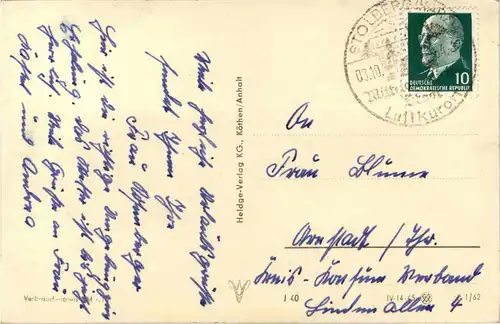 Viele herzliche Urlaubsgrüße
sendet Ihnen Ihre
Frau
Hier ist die richtige Umgebung zur
Erholung. Das Wetter ist bis jetzt
herrlich. Viele Grüße an Frau
und
Heldge-Verlag KG., Köthen/Anhalt
STOLBERG
03.10.
Luftkurort
10
DEUTSCHE
DEMOKRATISCHE REPUBLIK
An
Frau Blume
Arnstadt / Thr.
Kreis-Konsum Verband
Linden Allee 4
J 40
IV-14-45
1/62